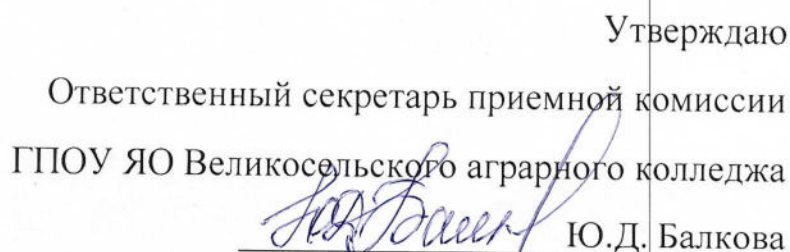 Утверждаю
Ответственный секретарь приемной комиссии
ГПОУ ЯО Великосельского аграрного колледжа
Ю.Д. Балкова